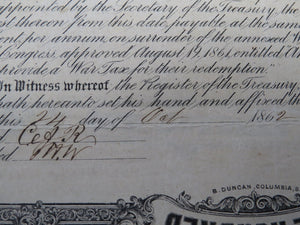 appointed by the Secretary of the Treasury, the
st thereon from this date, payable at the same
ent, per annum, on surrender of the annexed W
Congress, approved August 19, 1861, entitled "A
provide a War Tax for their redemption."
In Witness whereof the Register of the Treasury
hath hereunto set his hand, and affixed the
this 24 day of Oct 1862
d C & R
ed W W
B. DUNCAN, COLUMBIA, S.